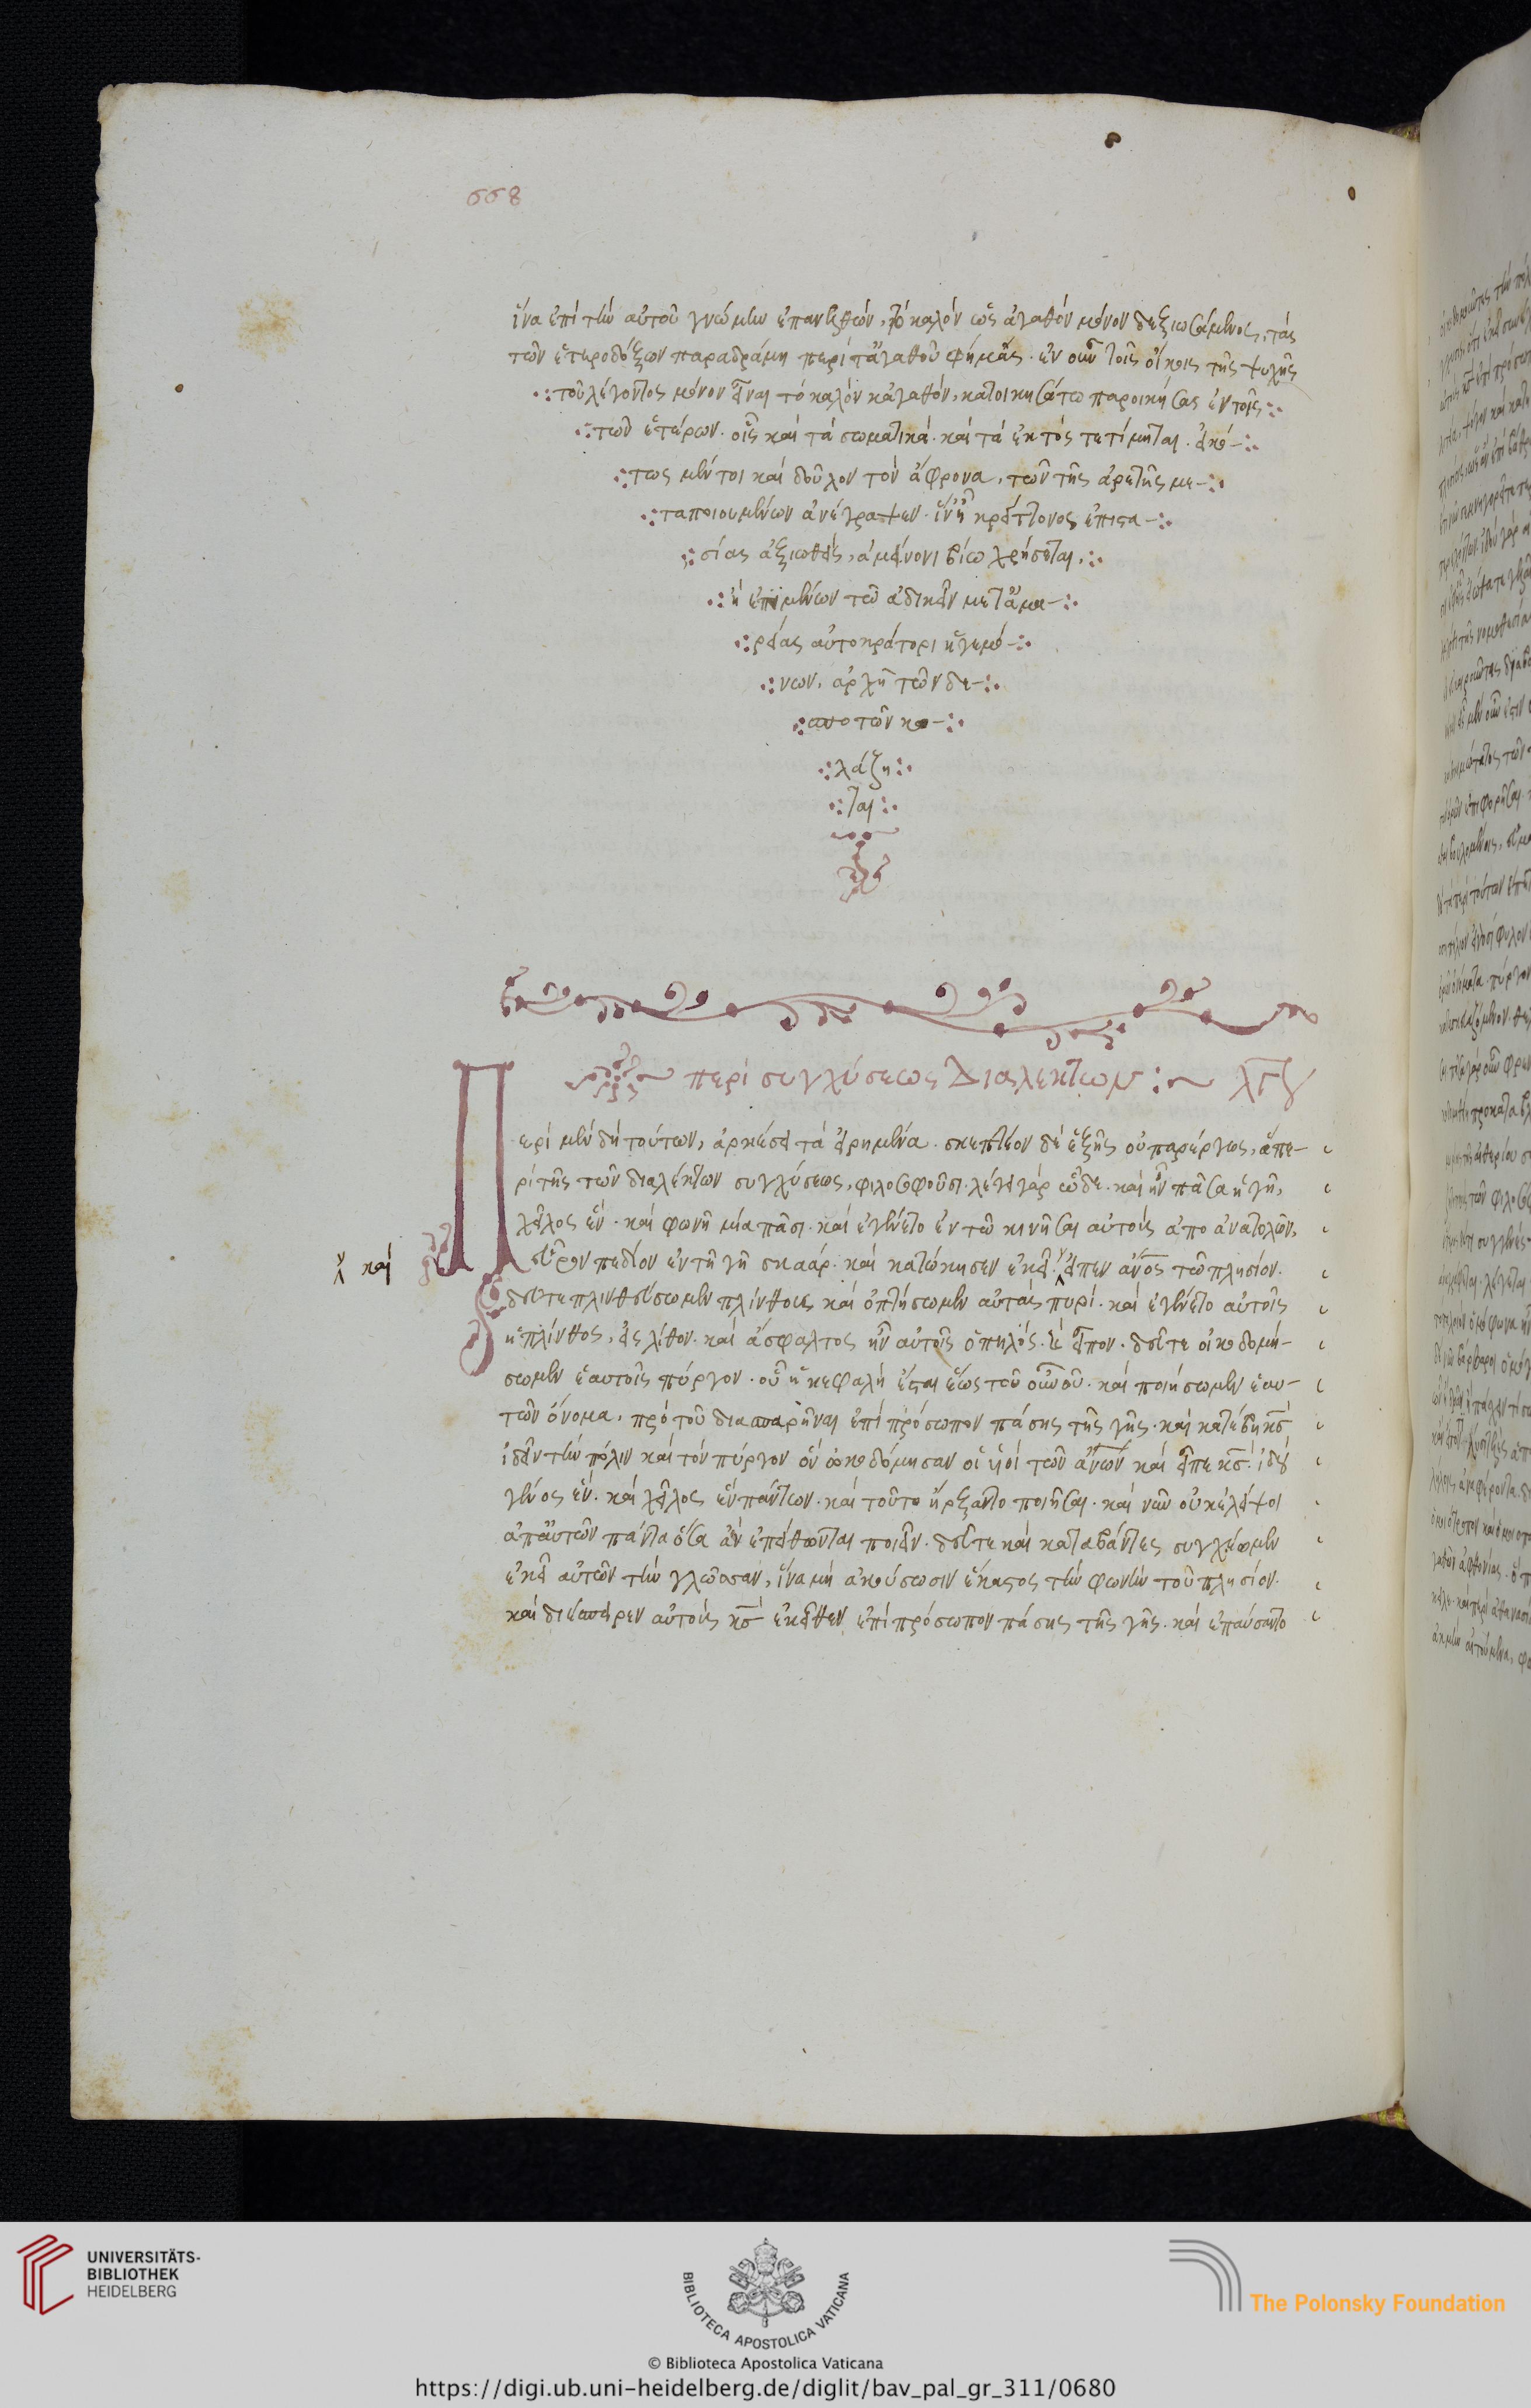 668
ἵνα ἐπὶ τὴν αὐτοῦ γνώμην ἐπανελθὼν, τὸ καλὸν ὡς ἀγαθὸν μόνον δεξιωσάμενος, τὰς
τῶν ἑτεροδόξων παραδράμη περὶ τἀγαθοῦ φήμας. ἐν οὖν τοῖς οἴκοις τῆς ψυχῆς
τοῦ λέγοντος μόνον εἶναι τὸ καλὸν κἀγαθὸν, κατοικησάτω παροικήσας ἐν τοῖς
τῶν ἑτέρων. οἷς καὶ τὰ σωματικὰ. καὶ τὰ ἐκτὸς τετίμηται. εἰκό-
τως μέντοι καὶ δοῦλον τὸν ἄφρονα, τῶν τῆς ἀρετῆς με-
ταποιουμένων ἀνέγραψεν. ἵν' ἢ κρείττονος ἐπιστα-
σίας ἀξιωθεὶς, ἀμείνονι βίω χρήσεται,
ἢ ἐπιμένων τῶ ἀδικεῖν μετ' εὐμα-
ρείας αὐτοκράτορι ἡγεμό-
νων, ἀρχῆ τῶν δε-
σποτῶν κο-
λάζη-
ται
περὶ συγχύσεως Διαλέκτων :~ λγ
Περὶ μὲν δὴ τούτων, ἀρκέσει τὰ εἰρημένα. σκεπτέον δὲ ἑξῆς οὐ παρέργως, ἃ πε-
ρὶ τῆς τῶν διαλέκτων συγχύσεως, φιλοσοφοῦσι. λέγει γὰρ ὧδε. καὶ ἦν πᾶσα ἡ γῆ,
χεῖλος ἕν. καὶ φωνὴ μία πᾶσι. καὶ ἐγένετο ἐν τῶ κινῆσαι αὐτοὺς ἀπο ἀνατολῶν,
εὗρον πεδίον ἐν τῆ γῆ σεναάρ. καὶ κατώκησεν ἐκεῖ. εἶπεν ἄνος τῶ πλησίον.
καὶ
δεῦτε πλινθεύσωμεν πλίνθους καὶ ὀπτήσωμεν αὐτὰς πυρί. καὶ ἐγένετο αὐτοῖς
ἡ πλίνθος, εἰς λίθον. καὶ ἄσφαλτος ἦν αὐτοῖς ὁ πηλός. καὶ εἶπον. δεῦτε οἰκοδομή-
σωμεν ἑαυτοῖς πύργον. οὗ ἡ κεφαλὴ ἔσται ἕως τοῦ οὐνοῦ. καὶ ποιήσωμεν ἑαυ-
τῶν ὄνομα, πρὸ τοῦ διασπαρῆναι ἐπὶ πρόσωπον πάσης τῆς γῆς. καὶ κατέβη κς
ἰδεῖν τὴν πόλιν καὶ τὸν πύργον ὃν ὠκοδόμησαν οἱ υἱοὶ τῶν ἀνων καὶ εἶπε κς. ἰδοὺ
γένος ἓν. καὶ χεῖλος ἓν πάντων. καὶ τοῦτο ἤρξαντο ποιῆσαι. καὶ νῦν οὐκ ἐκλείψει
ἀπ' αὐτῶν πάντα ὅσα ἂν ἐπιθῶνται ποιεῖν. δεῦτε καὶ καταβάντες συγχέωμεν
ἐκεῖ αὐτῶν τὴν γλῶσσαν, ἵνα μὴ ἀκούσωσιν ἕκαστος τὴν φωνὴν τοῦ πλησίον.
καὶ διέσπειρεν αὐτοὺς κς ἐκεῖθεν ἐπὶ πρόσωπον πάσης τῆς γῆς. καὶ ἐπαύσαντο
UNIVERSITÄTS-
BIBLIOTHEK
HEIDELBERG
BIBLIOTECA APOSTOLICA VATICANA
The Polonsky Foundation
© Biblioteca Apostolica Vaticana
https://digi.ub.uni-heidelberg.de/diglit/bav_pal_gr_311/0680